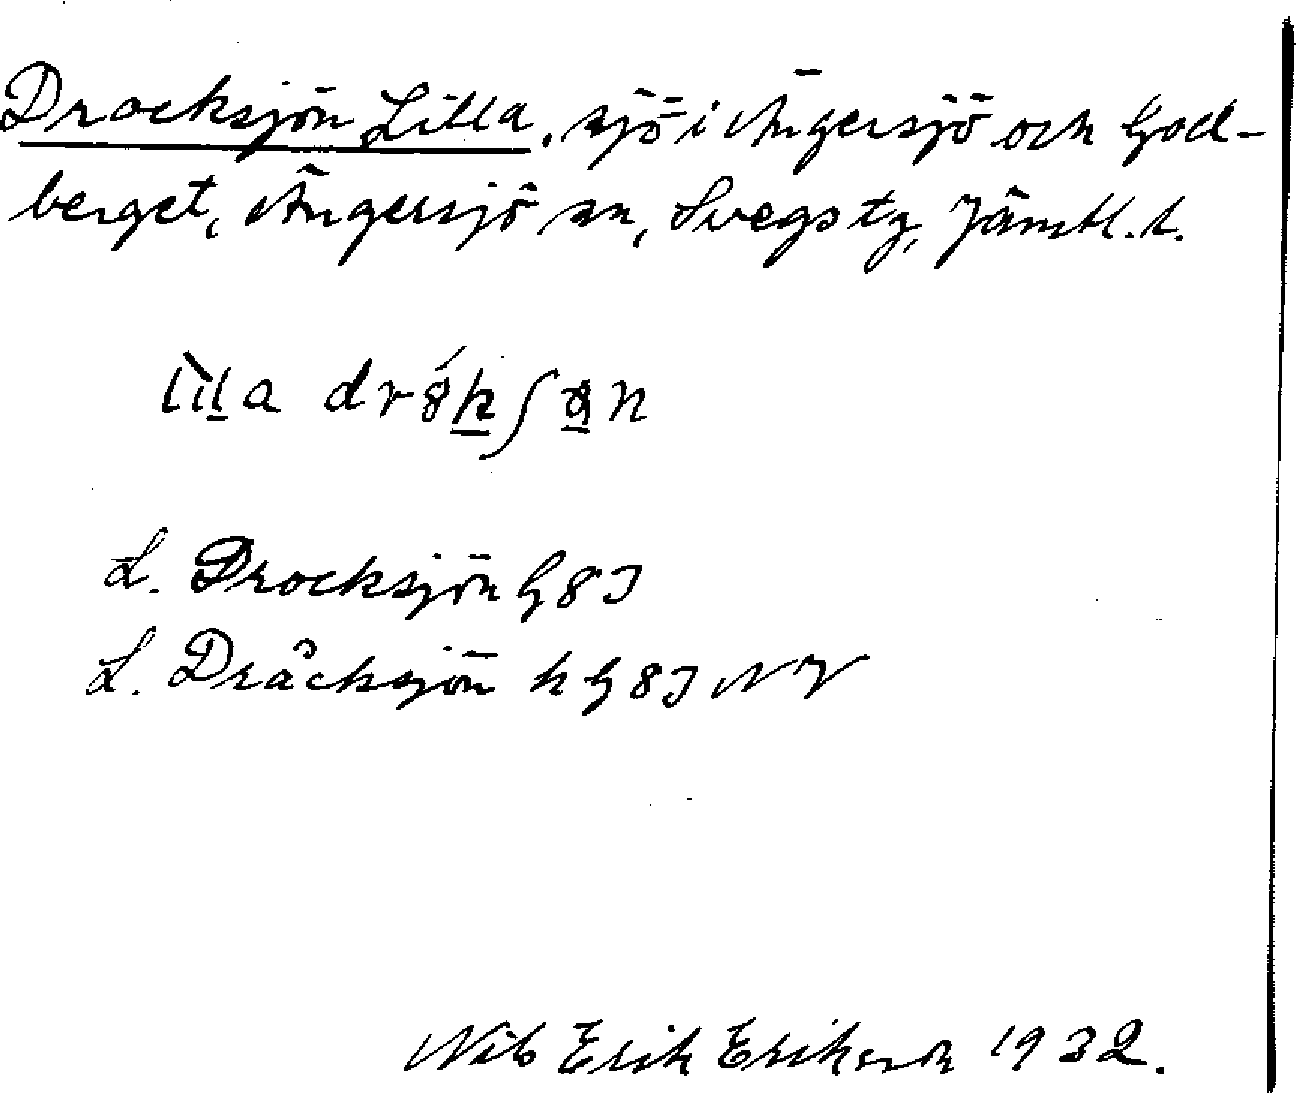 Drocksjön Lilla, sjö i Ängersjö och God-
berget, Ängersjö sn, Svegs tg, Jämtl. l.
L. Drocksjön G 8 J
L. Dråcksjön h G 8 J NV
Nils Erik Eriksson 1932.